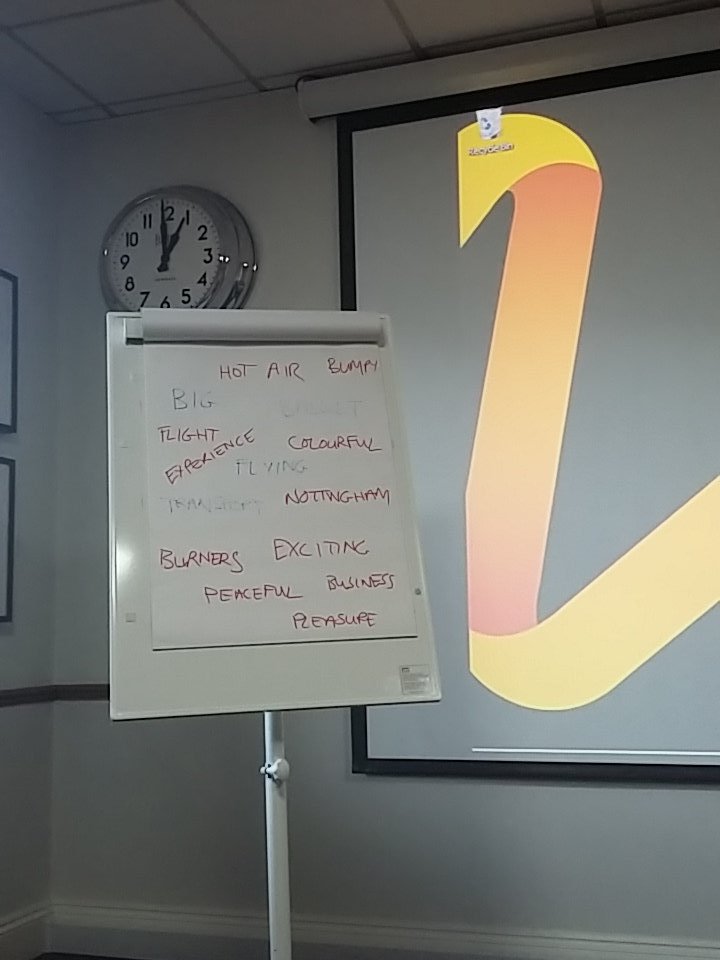 12
1
2
3
5
6
7
8
9
10
11
Recycle Bin
HOT AIR BUMPY
BIG
FLIGHT
EXPERIENCE
COLOURFUL
FLYING
TRANSPORT
NOTTINGHAM
BURNERS EXCITING
PEACEFUL BUSINESS
PLEASURE